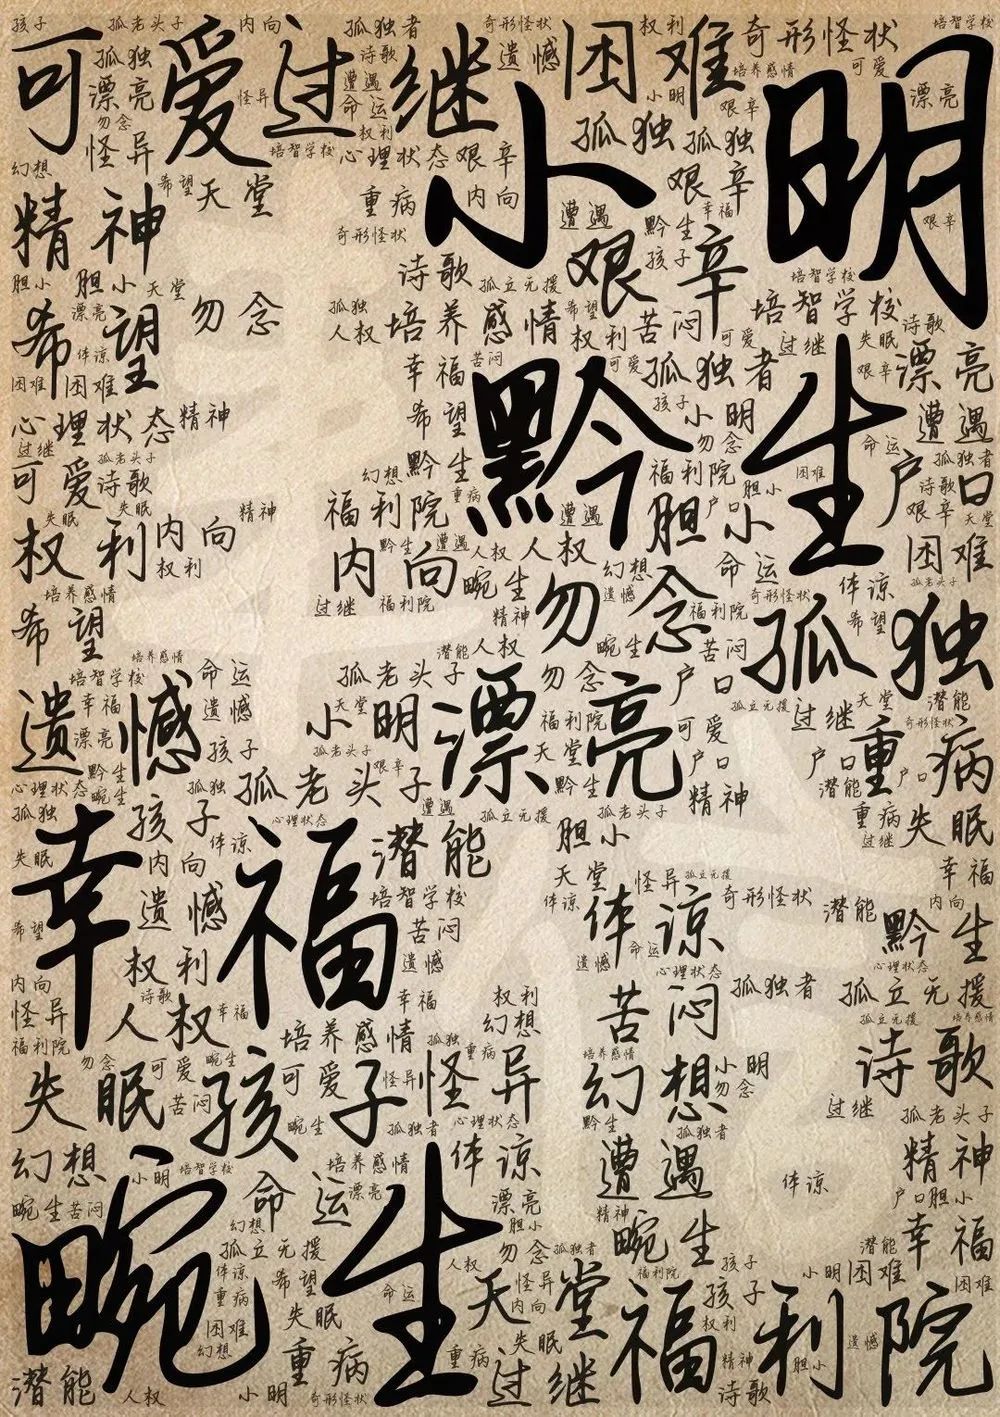 孩子 孤老头子 内向 孤独者 奇形怪状 权利 培智学校
可爱 孤独 过继 诗歌 继 遗憾 困难 奇形怪状
漂亮 怪异 遭遇 培养感情 可爱 漂亮
勿念 命运 小明 艰辛
怪异 权利 孤独 孤独
幻想 培智学校 心理状态 艰辛 小明
希望 天堂 重病 内向 艰辛
精神 奇形怪状 遭遇 幸福 黔生 艰辛
胆小 胆小 天堂 诗歌 孤立无援 艰辛 孩子 培智学校
漂亮 勿念 孤独 希望 培智学校
希望 人权 培养感情 权利 苦闷 可爱 过继 失眠 诗歌
体谅 幸福 苦闷 可爱 孤独者 艰辛 漂亮
困难 困难 希望 黔生 孩子 小明 遭遇
心理状态 精神 勿念 命运
过继 孤老头子 黔生 福利院 困难 户口 孤独者
可爱 诗歌 幻想 重病 胆小 诗歌
失眠 失眠 精神 福利院 遭遇 胆小 户口 艰辛 天堂
权利 内向 黔生 遭遇 人权 人权 困难
权利 内向 畹生 幻想 命运 体谅 孤老头子
培养感情 过继 福利院 精神 勿念 遗憾 福利院 奇形怪状
希望 潜能 人权 畹生 苦闷 孤独 希望
培养感情 命运 孤老头子 勿念 户口
培智学校 天堂 孤立无援 过继 天堂 潜能
遗憾 幸福 遗憾 小明 漂亮 福利院 可爱 奇形怪状
漂亮 孩子 孤老头子 天堂 户口 户口 重病
黔生 艰辛 黔生 潜能 户口
心理状态 畹生 孤独 孤老头子 精神
孤独 孩子 心理状态 遭遇 孤立无援 孤老头子 重病 失眠
幸福 体谅 潜能 胆小 过继
失眠 内向 天堂 怪异 孤立无援 幸福
遗憾 培智学校 体谅 体谅 奇形怪状 潜能 内向
希望 苦闷 命运 黔生
权利 遗憾 遗憾 心理状态 心理状态
内向 诗歌 幸福 权利 苦闷 孤独者 孤立无援
怪异 人权 幸福 幻想 孤立无援 培养感情
福利院 培养感情 孤独 重病 培养感情 诗歌
勿念 可爱 畹生 怪异 小明
失眠 苦闷 孩子 可爱 怪异 幻想 勿念 过继
畹生 孤独者 心理状态 黔生 孤老头子
幻想 小明 培智学校 培养感情 体谅 孤独者 精神
畹生 苦闷 命运 漂亮 漂亮 遭遇 体谅 户口 胆小
畹生 幻想 胆小 精神
孤立无援 人权 勿念 孤独者 畹生 潜能 幸福
体谅 希望 怪异 福利院 孩子 小明 困难 困难
重病 命运 天堂 内向 孩子
困难 失眠 失眠 福利院 权利 遗憾
幻想 重病 重病 精神 胆小
潜能 人权 小明 奇形怪状 过继 诗歌